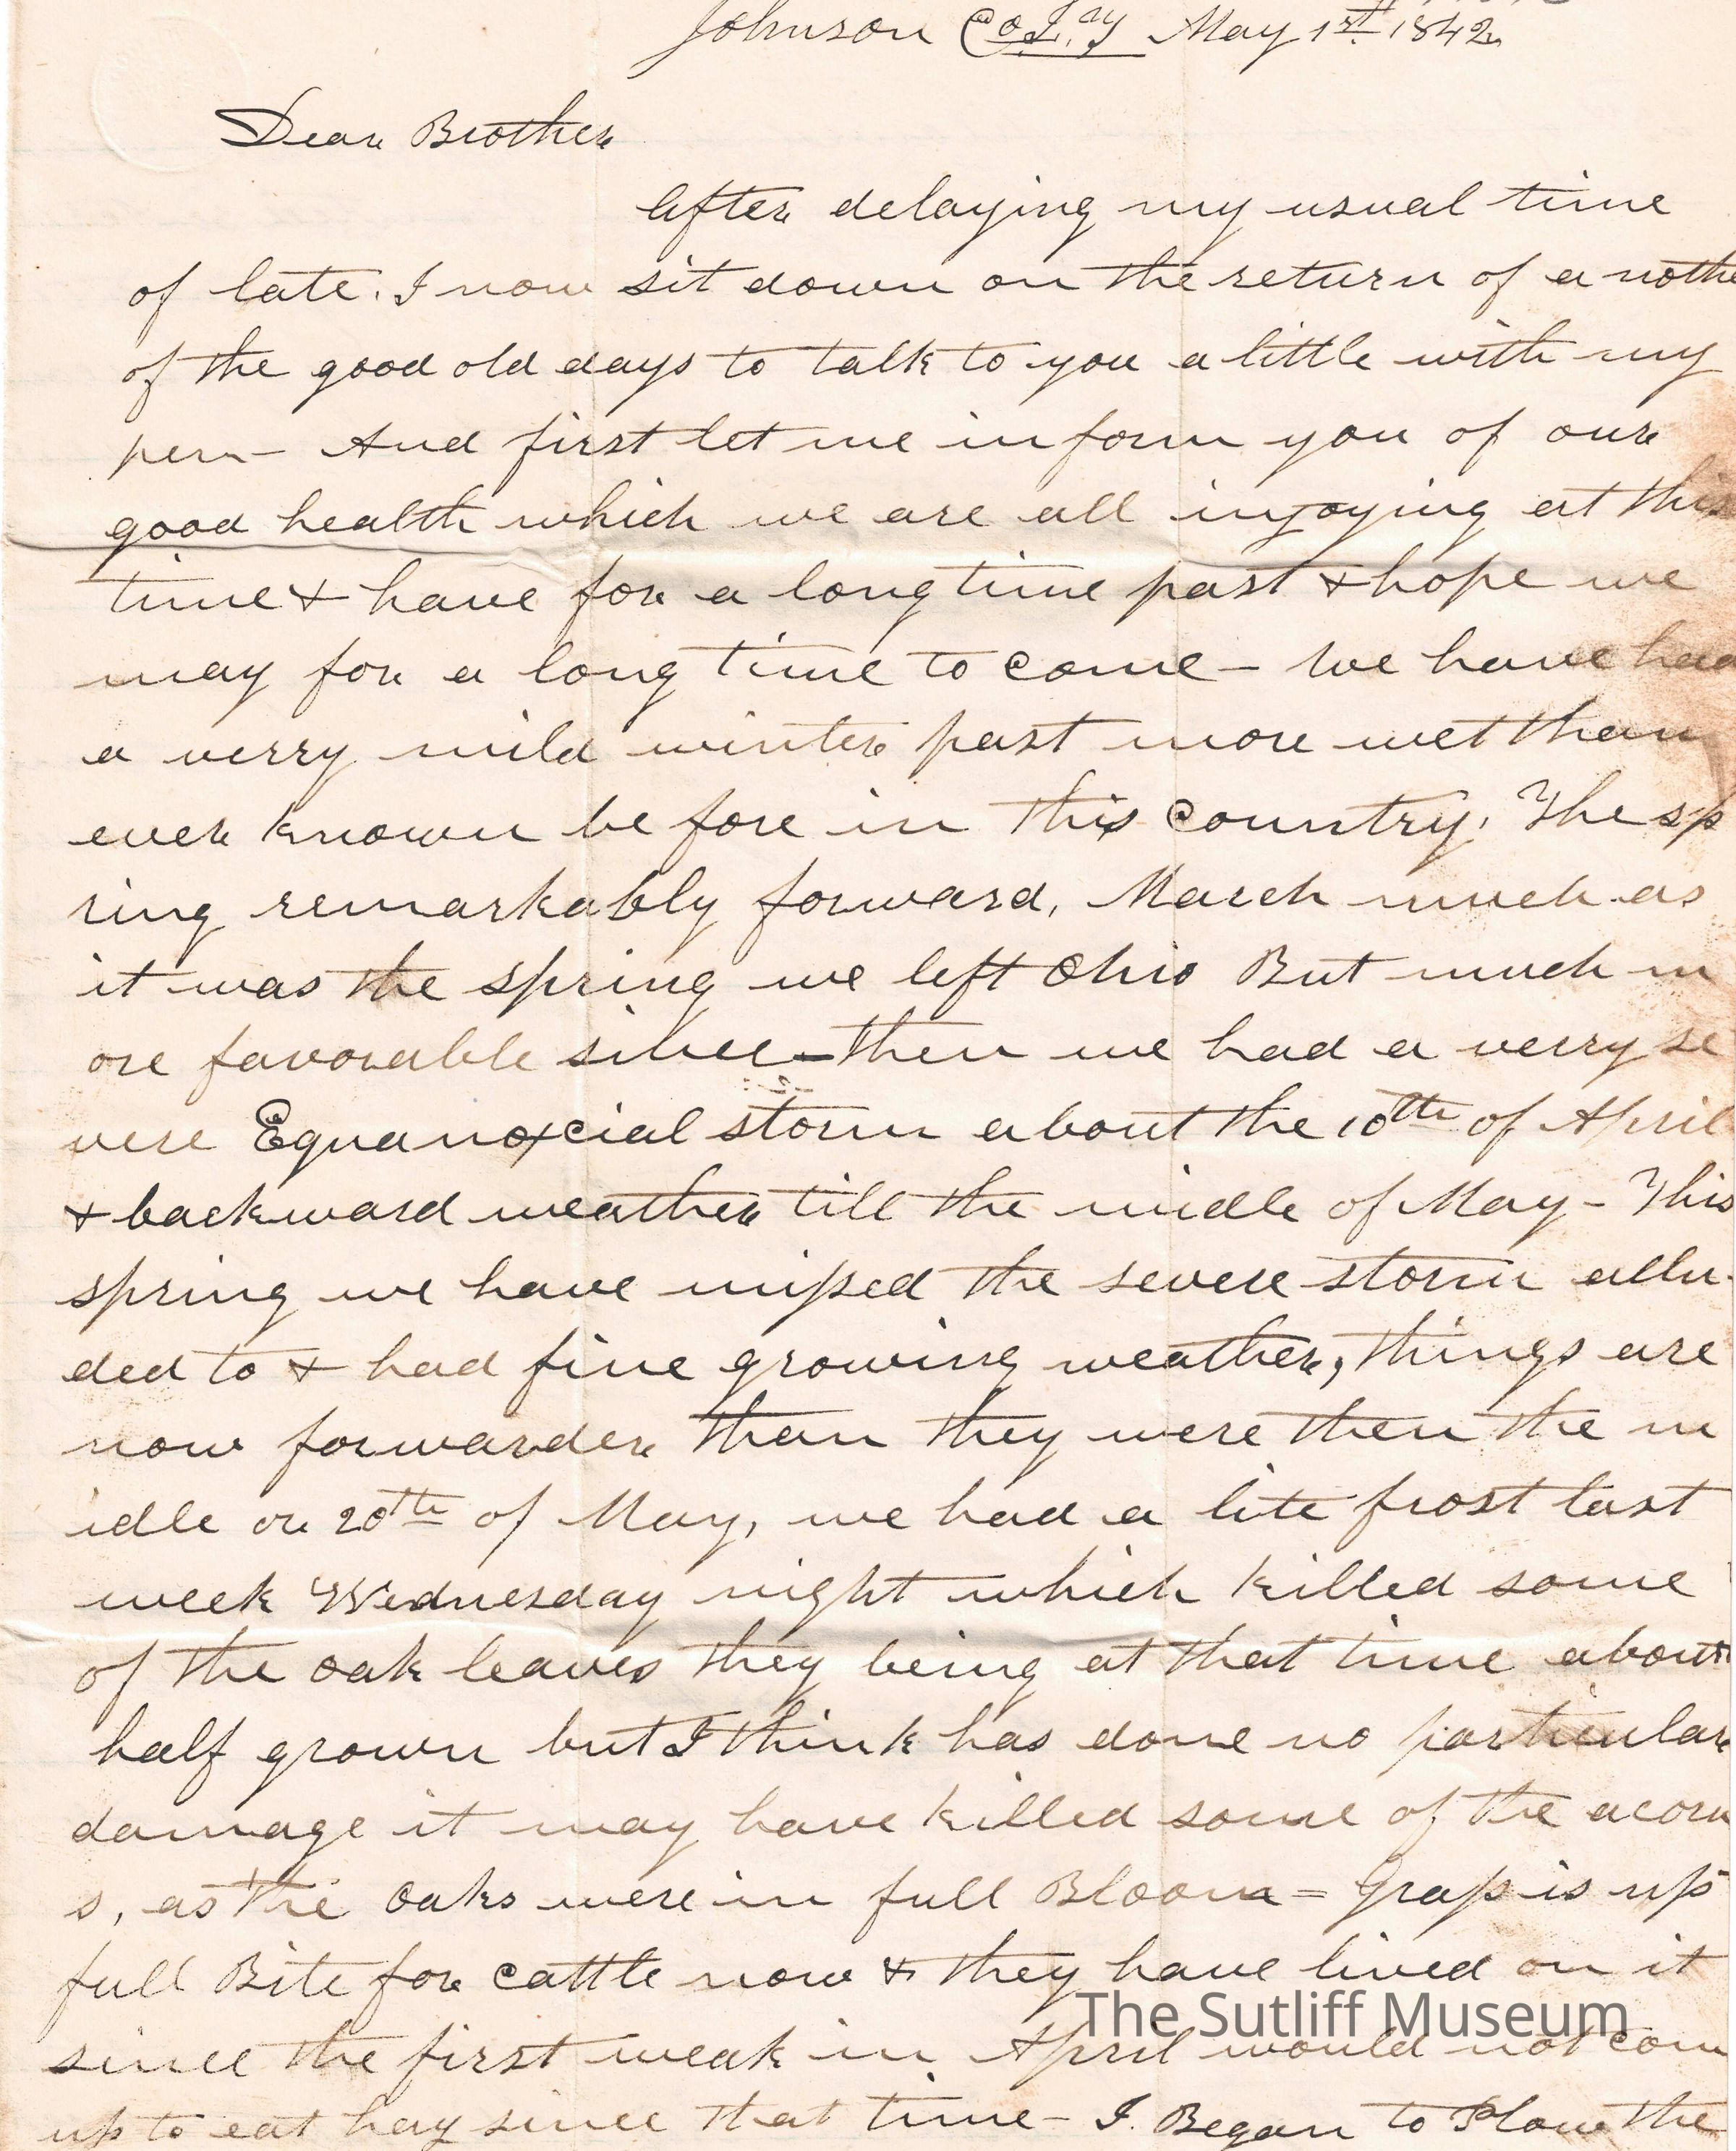 Johnson Co I.ay May 1st 1842
Dear Brother
After delaying my usual time
of late. I now sit down on the return of a nothe
of the good old days to talk to you a little with my
pen - And first let me in form you of our
good health which we are all injoying at this
time & have for a long time past & hope we
may for a long time to come - We have had
a verry mild winter past more wet than
ever known be fore in this country. The sp
ring remarkably forward, March much as
it was the spring we left Ohio But much m
ore favorable since - then we had a verry se
vere Equanoxcial storm about the 10th of April
& backward weather till the midle of May - This
spring we have missed the severe storm allu-
ded to & had fine growing weather, things are
now forwarder than they were then the m
idle or 20th of May, we had a lite frost last
week Wednesday night which killed some
of the oak leaves they being at that time about
half grown but I think has done no particular
damage it may have killed some of the acorn
s, as the Oaks were in full Bloom = Grass is up
full Bite for cattle now & they have lived on it
The Sutliff Museum
since the first weak in April would not com
up to eat hay since that time - I Began to Plow the